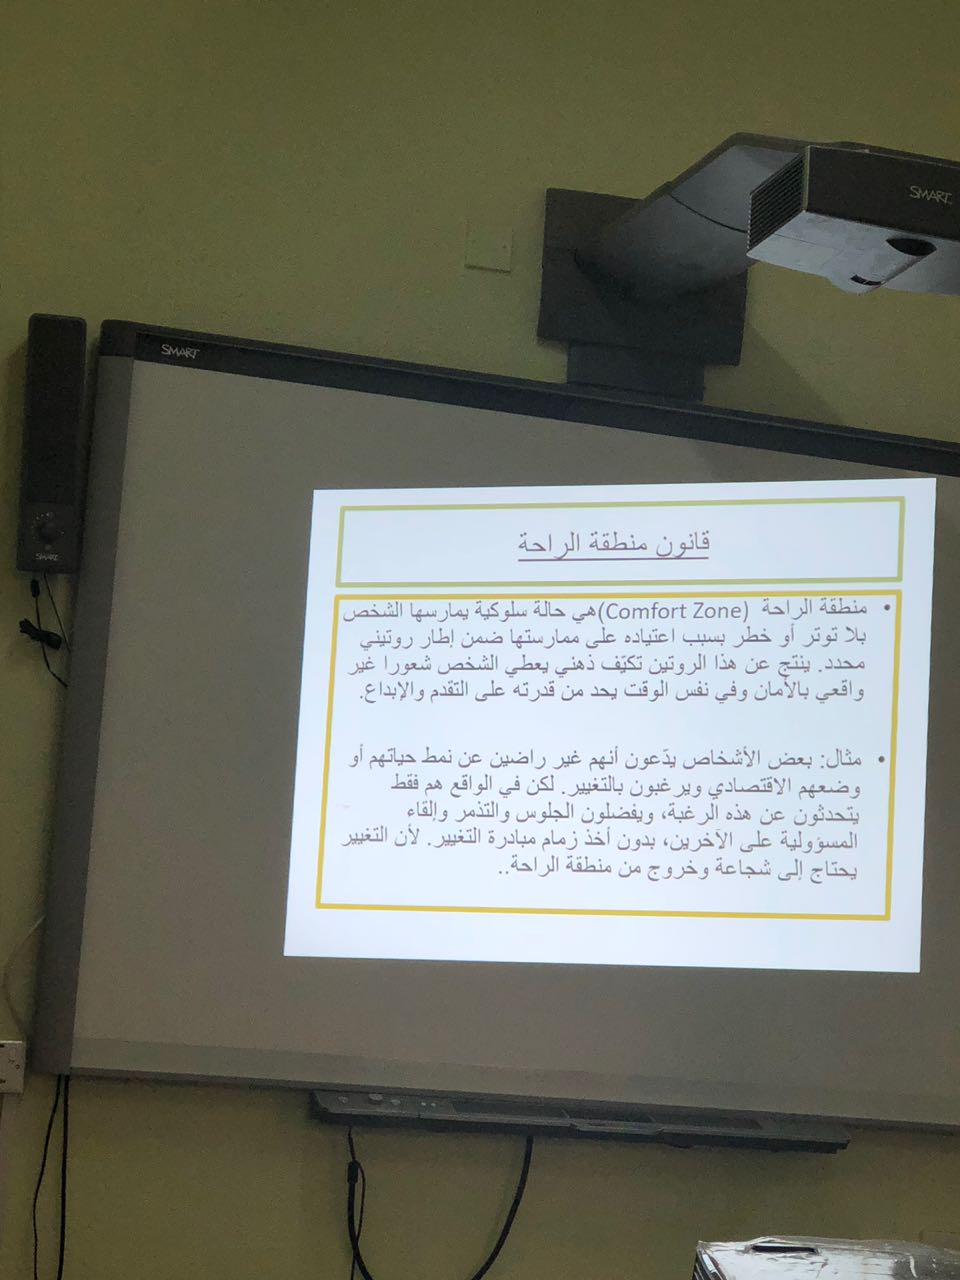 SMART
SMART
SMART
قانون منطقة الراحة
• منطقة الراحة (Comfort Zone)هي حالة سلوكية يمارسها الشخص
بلا توتر أو خطر بسبب اعتياده على ممارستها ضمن إطار روتيني
محدد. ينتج عن هذا الروتين تكيّف ذهني يعطي الشخص شعورا غير
واقعي بالأمان وفي نفس الوقت يحد من قدرته على التقدم والإبداع.
• مثال: بعض الأشخاص يدّعون أنهم غير راضين عن نمط حياتهم أو
وضعهم الاقتصادي ويرغبون بالتغيير. لكن في الواقع هم فقط
يتحدثون عن هذه الرغبة، ويفضلون الجلوس والتذمر وإلقاء
المسؤولية على الآخرين، بدون أخذ زمام مبادرة التغيير. لأن التغيير
يحتاج إلى شجاعة وخروج من منطقة الراحة..